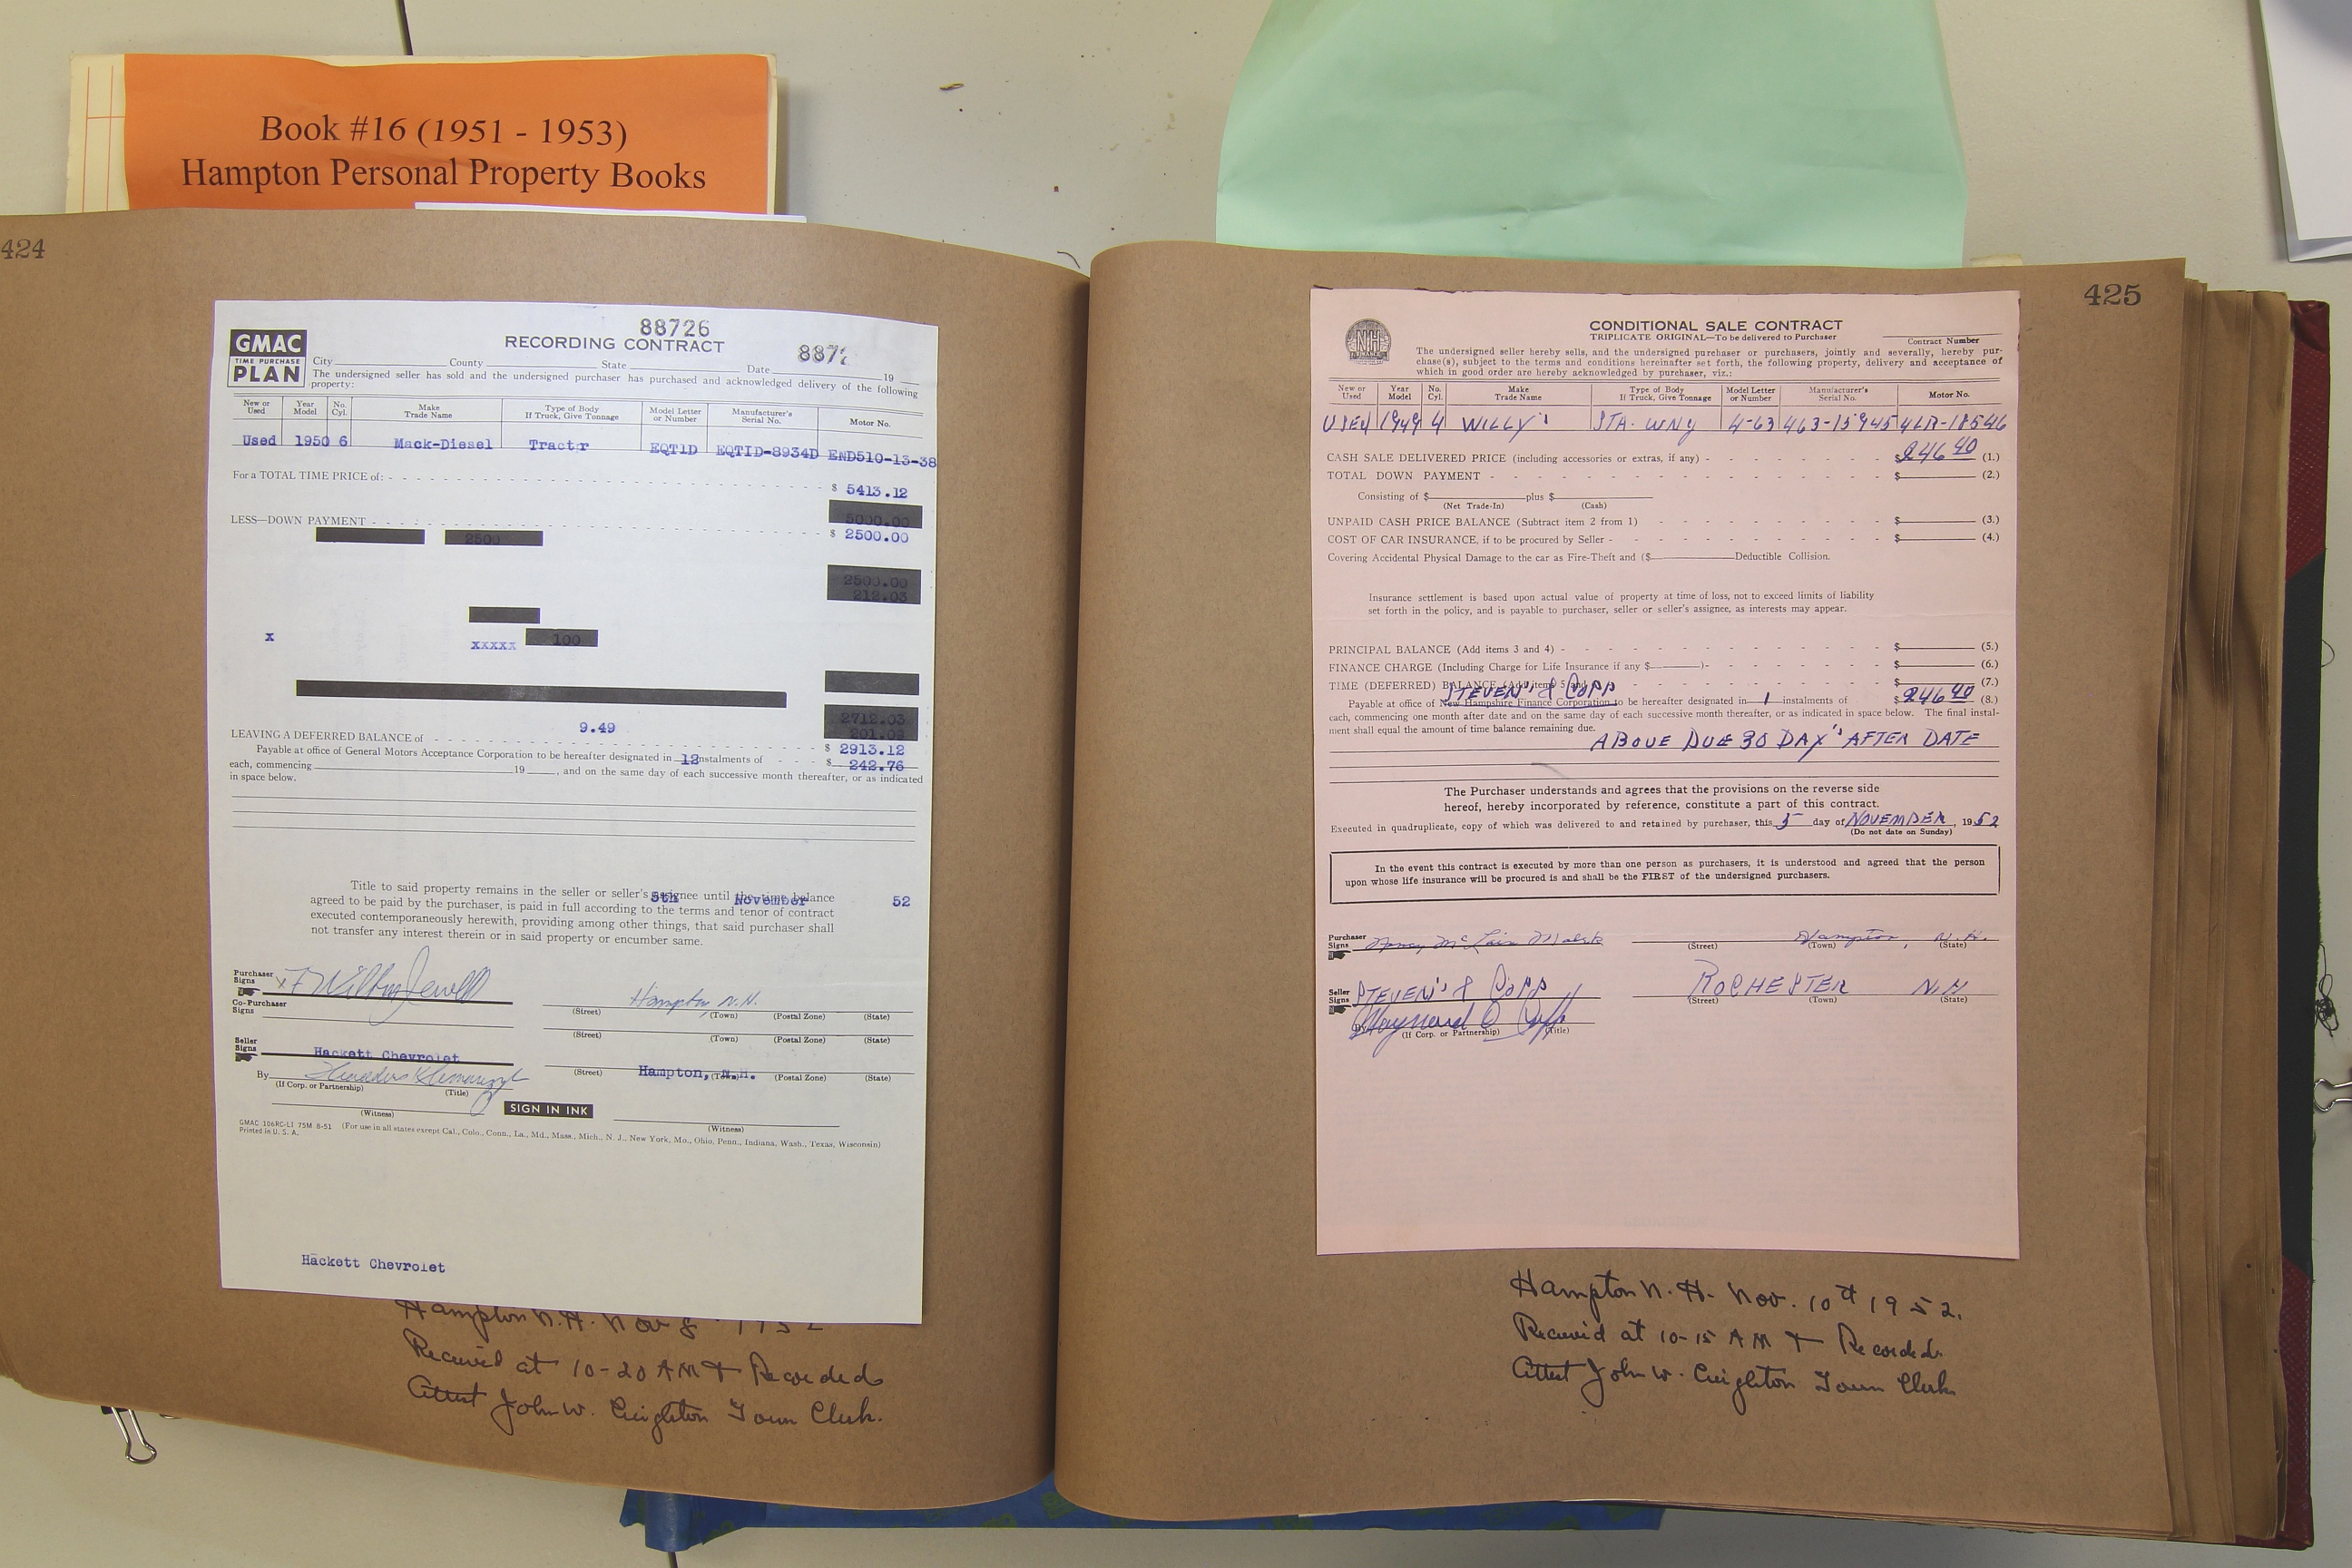 Book #16 (1951 - 1953)
Hampton Personal Property Books
424
88726
887
GMAC
TIME PURCHASE
PLAN
RECORDING CONTRACT
City County State Date 19
The undersigned seller has sold and the undersigned purchaser has purchased and acknowledged delivery of the following
property:
New or Used Year Model No. Cyl. Make Trade Name Type of Body If Truck, Give Tonnage Model Letter or Number Manufacturer's Serial No. Motor No.
Used 1950 6 Mack-Diesel Tractr EQT1D EQTID-8934D END510-13-38
For a TOTAL TIME PRICE of: $ 5413.12
5000.00
LESS—DOWN PAYMENT $ 2500.00
2500
2500.00
212.03
x xxxxx 100
2712.03
201.09
9.49
LEAVING A DEFERRED BALANCE of $ 2913.12
Payable at office of General Motors Acceptance Corporation to be hereafter designated in 12 instalments of $ 242.76
each, commencing 19 , and on the same day of each successive month thereafter, or as indicated
in space below.
Title to said property remains in the seller or seller's assignee until the time balance
5th November 52
agreed to be paid by the purchaser, is paid in full according to the terms and tenor of contract
executed contemporaneously herewith, providing among other things, that said purchaser shall
not transfer any interest therein or in said property or encumber same.
Purchaser Signs x F Wilbur Jewell Hampton N.H.
(Street) (Town) (Postal Zone) (State)
Co-Purchaser Signs
(Street) (Town) (Postal Zone) (State)
Seller Signs Hackett Chevrolet
Hampton, N.H.
By (Street) (Town) (Postal Zone) (State)
(If Corp. or Partnership) (Title)
SIGN IN INK
(Witness) (Witness)
GMAC 106RC-LI 75M 8-51 (For use in all states except Cal., Colo., Conn., La., Md., Mass., Mich., N. J., New York, Mo., Ohio, Penn., Indiana, Wash., Texas, Wisconsin)
Printed in U. S. A.
Hackett Chevrolet
Hampton N.H. Nov 8 1952
Received at 10-20 AM + Recorded
Attest John W. Creighton Town Clerk.
425
NH
FINANCE
CONDITIONAL SALE CONTRACT
TRIPLICATE ORIGINAL—To be delivered to Purchaser
Contract Number
The undersigned seller hereby sells, and the undersigned purchaser or purchasers, jointly and severally, hereby pur-
chase(s), subject to the terms and conditions hereinafter set forth, the following property, delivery and acceptance of
which in good order are hereby acknowledged by purchaser, viz.:
New or Used Year Model No. Cyl. Make Trade Name Type of Body If Truck, Give Tonnage Model Letter or Number Manufacturer's Serial No. Motor No.
USED 1949 4 WILLY'S STA. WNG 4-63 463-15945 4LR-18546
CASH SALE DELIVERED PRICE (including accessories or extras, if any) - $ 246 40 (1.)
TOTAL DOWN PAYMENT - $ (2.)
Consisting of $ plus $
(Net Trade-In) (Cash)
UNPAID CASH PRICE BALANCE (Subtract item 2 from 1) $ (3.)
COST OF CAR INSURANCE, if to be procured by Seller - $ (4.)
Covering Accidental Physical Damage to the car as Fire-Theft and ($ Deductible Collision.
Insurance settlement is based upon actual value of property at time of loss, not to exceed limits of liability
set forth in the policy, and is payable to purchaser, seller or seller's assignee, as interests may appear.
PRINCIPAL BALANCE (Add items 3 and 4) - $ (5.)
FINANCE CHARGE (Including Charge for Life Insurance if any $ ) - $ (6.)
TIME (DEFERRED) BALANCE (Add items 5 and $ (7.)
STEVEN'S & COPP
Payable at office of New Hampshire Finance Corporation to be hereafter designated in 1 instalments of $ 246 40 (8.)
each, commencing one month after date and on the same day of each successive month thereafter, or as indicated in space below. The final instal-
ment shall equal the amount of time balance remaining due.
ABOVE DUE 30 DAY'S AFTER DATE
The Purchaser understands and agrees that the provisions on the reverse side
hereof, hereby incorporated by reference, constitute a part of this contract.
Executed in quadruplicate, copy of which was delivered to and retained by purchaser, this 5 day of NOVEMBER, 1952
(Do not date on Sunday)
In the event this contract is executed by more than one person as purchasers, it is understood and agreed that the person
upon whose life insurance will be procured is and shall be the FIRST of the undersigned purchasers.
Purchaser Signs Hampton, N.H.
(Street) (Town) (State)
Seller Signs STEVEN'S & COPP ROCHESTER N.H
(Street) (Town) (State)
By Maynard Copp
(If Corp. or Partnership) (Title)
Hampton N.H. Nov. 10th 1952.
Received at 10-15 AM + Recorded.
Attest John W. Creighton Town Clerk